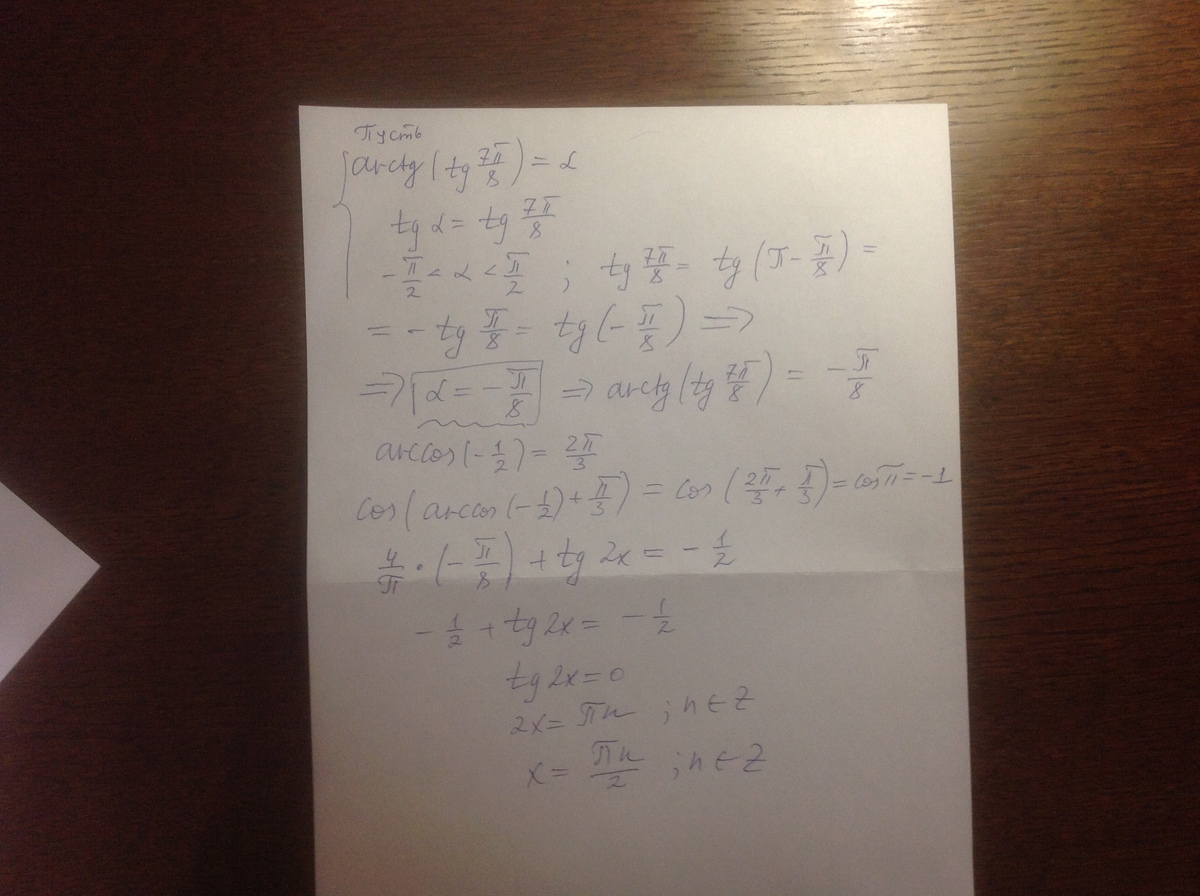 Пусть
arctg(tg 7π/8) = α
tg α = tg 7π/8
-π/2 < α < π/2 ; tg 7π/8 = tg(π - π/8) =
= - tg π/8 = tg(-π/8) ⟹
⟹ α = -π/8 ⟹ arctg(tg 7π/8) = -π/8
arccos(-1/2) = 2π/3
cos(arccos(-1/2) + π/3) = cos(2π/3 + π/3) = cos π = -1
4/π · (-π/8) + tg 2x = -1/2
-1/2 + tg 2x = -1/2
tg 2x = 0
2x = πn ; n ∈ Z
x = πn/2 ; n ∈ Z